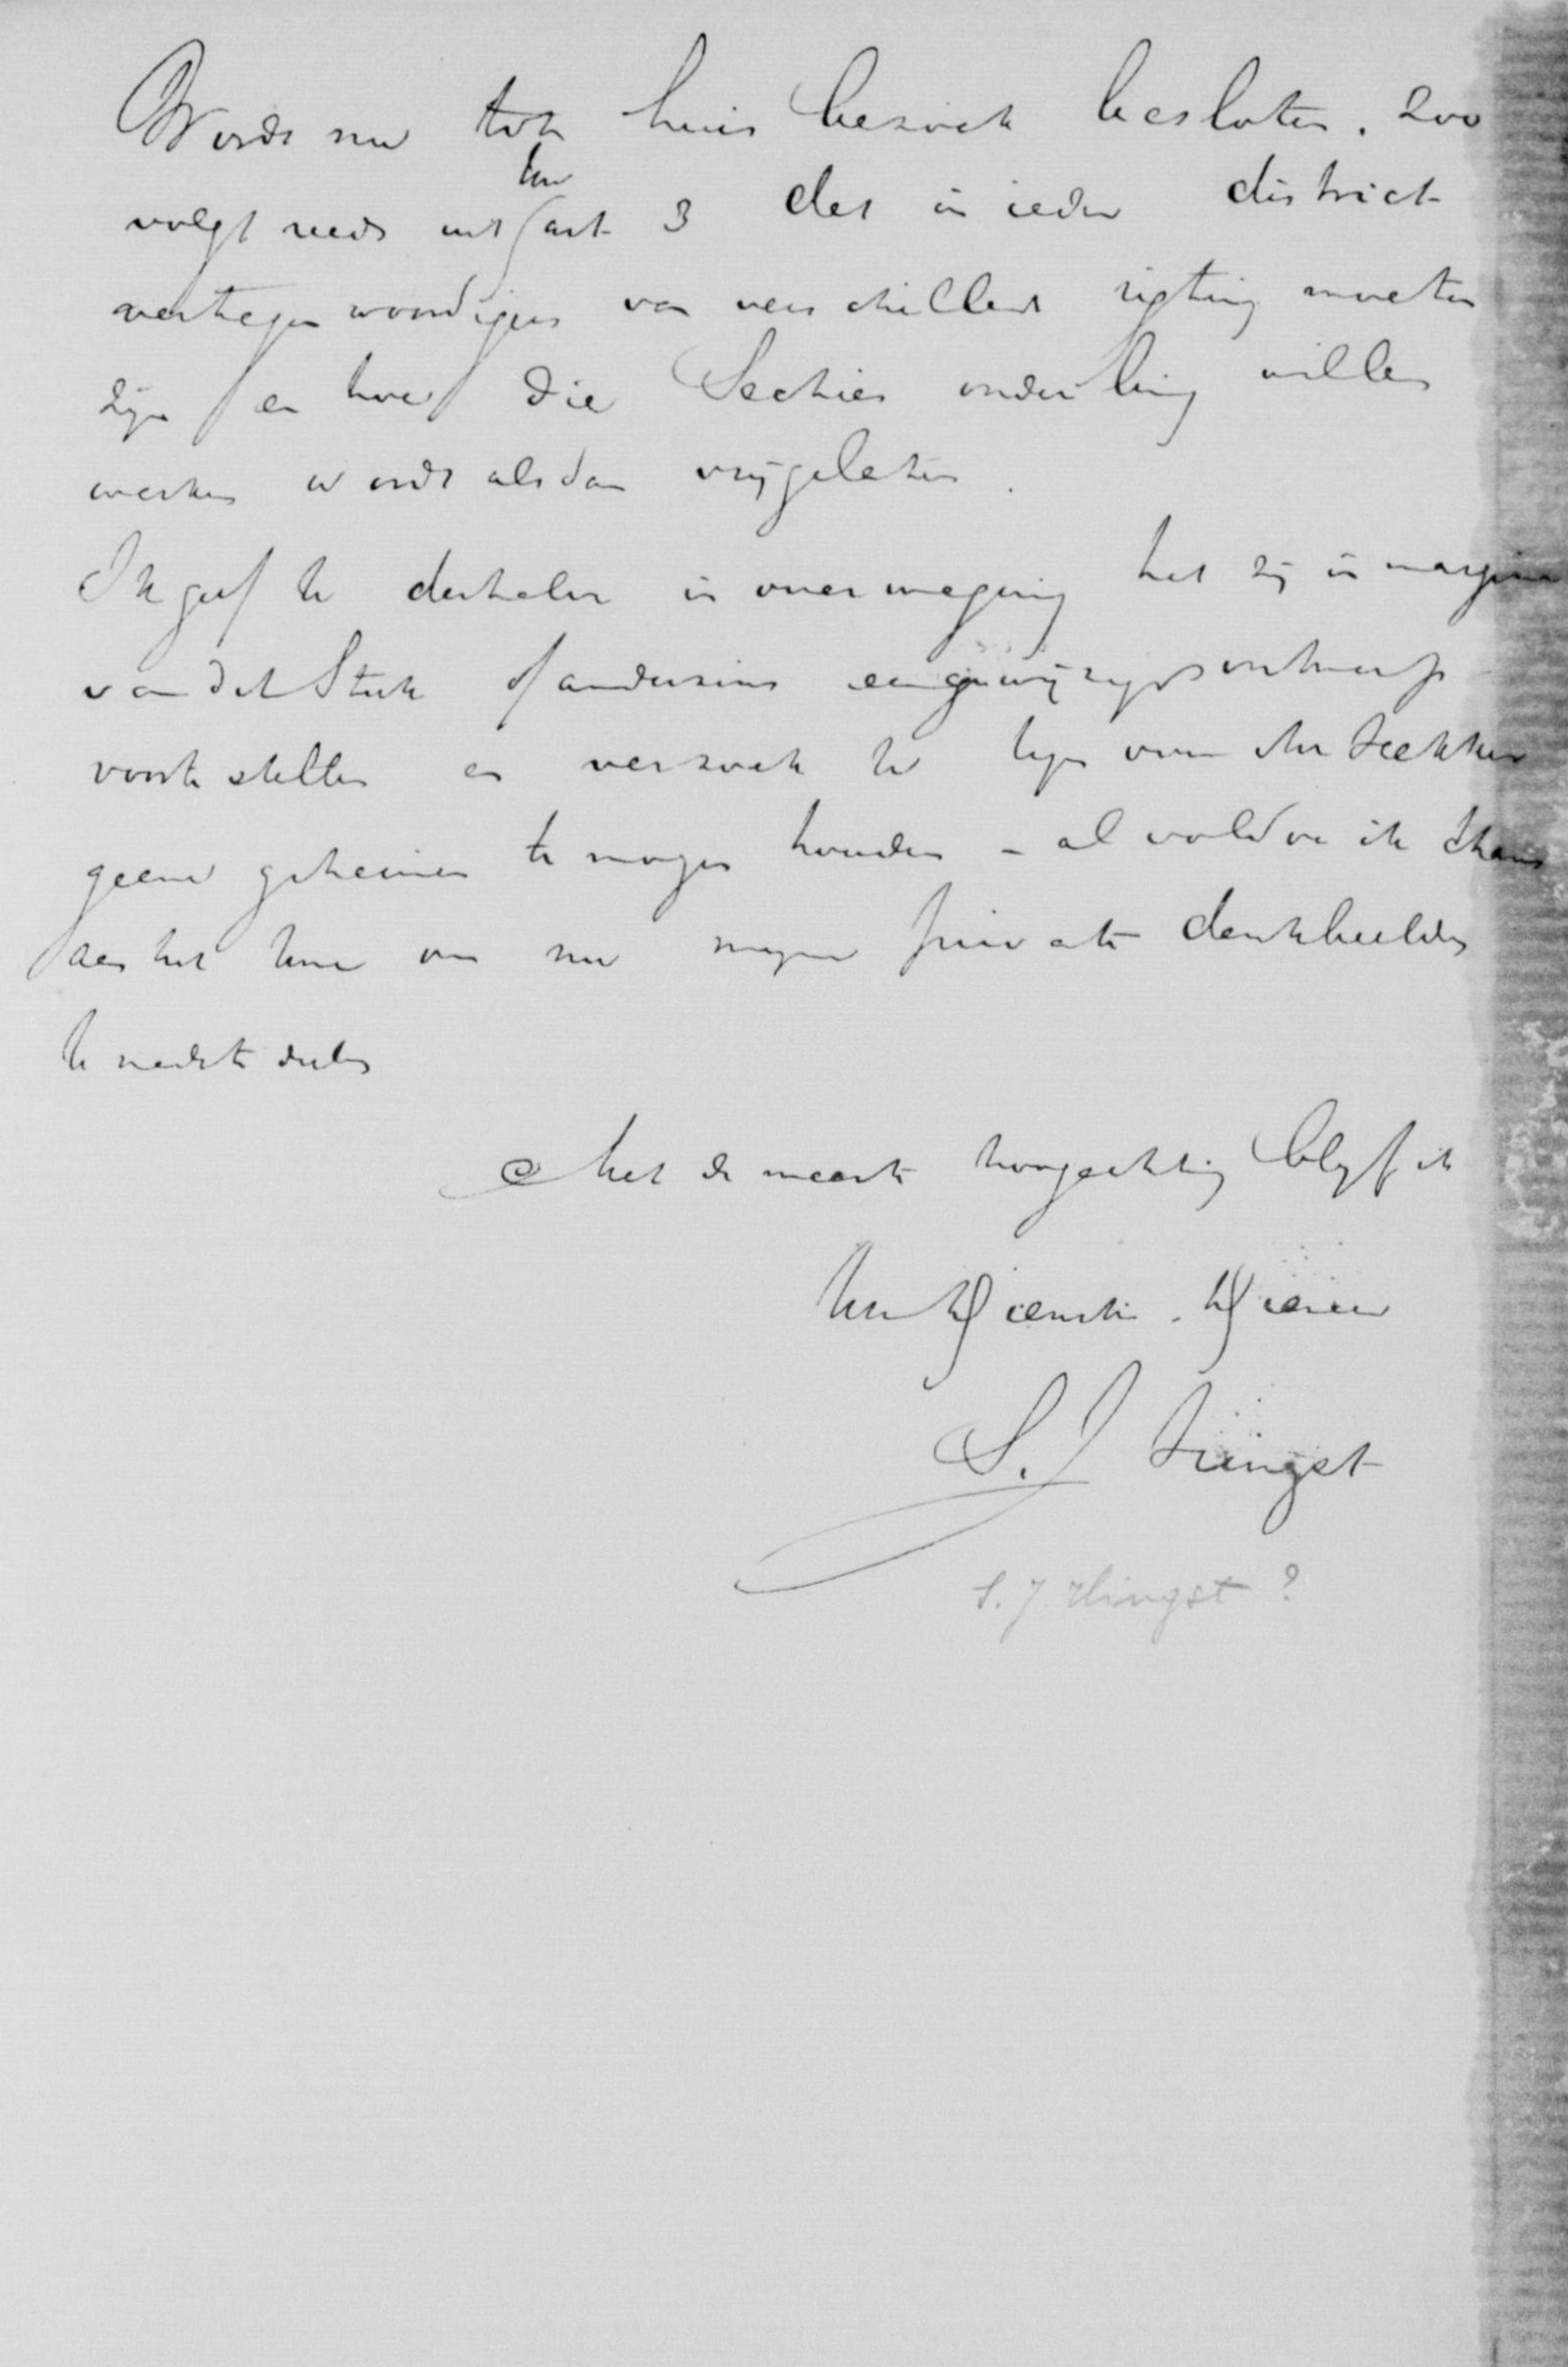 Wordt nu tot huis bezoek besloten. Zoo
uw
volgt reeds uit art 3 dat in ieder district
vertegenwoordigers van verschillende rigting moeten
zijn en hoe die Secties onderling willen
werken wordt alsdan vrijgelaten.
Ik geef U derhalve in overweging het zij in margine
van dit Stuk of anderzins een gewijzigd ontwerp
voor te stellen en verzoek U tegenover den Heer
geene geheimen te mogen houden - al voldoe ik thans
aan het Uwe om nu mijne private denkbeelden
U mede te deelen
Met de meeste hoogachting blijf ik
Uw Dienstv. Dienaar
S. J. Hingst
S. J. Hingst ?